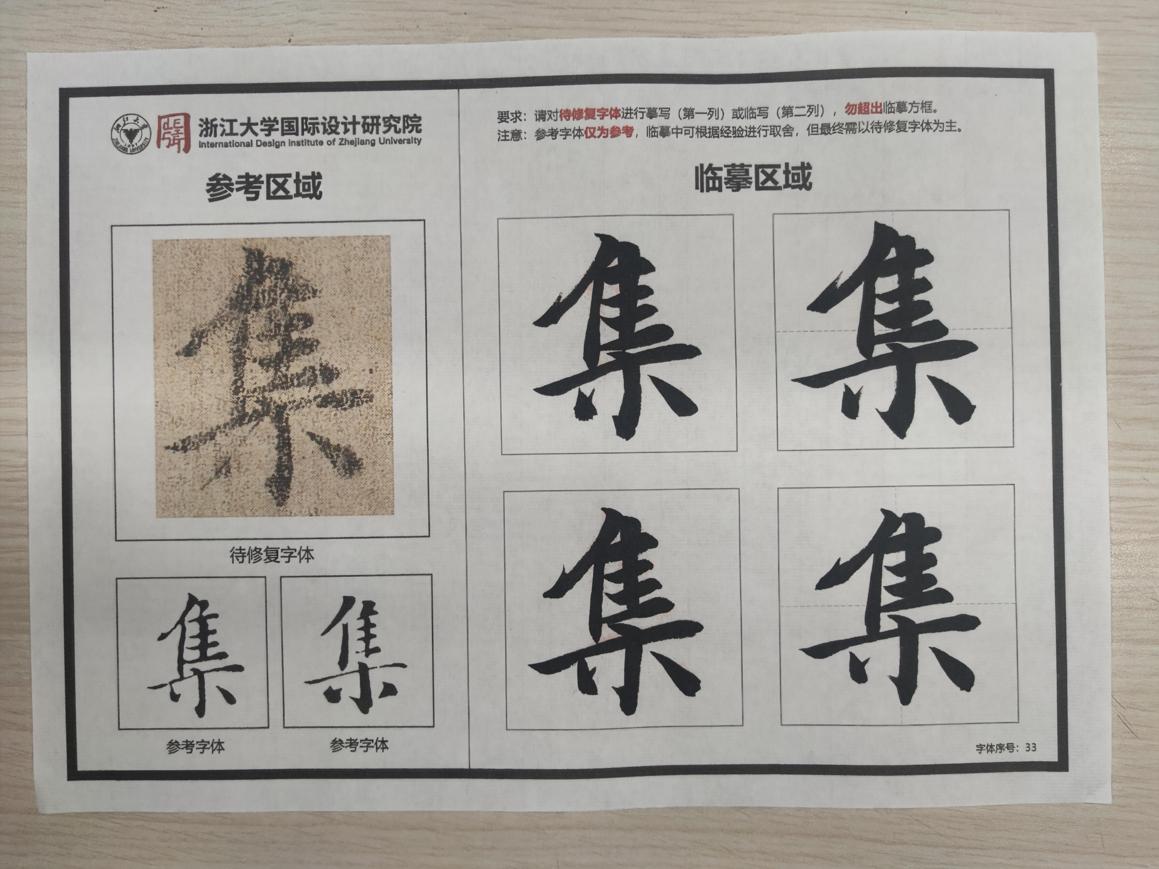 浙江大学国际设计研究院
International Design Institute of Zhejiang University
参考区域
集
待修复字体
集 集
参考字体 参考字体
要求：请对待修复字体进行摹写（第一列）或临写（第二列），勿超出临摹方框。
注意：参考字体仅为参考，临摹中可根据经验进行取舍，但最终需以待修复字体为主。
临摹区域
集 集
集 集
字体序号：33